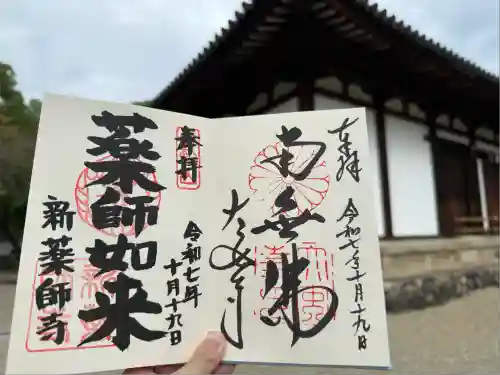 奉拝
南無仏
大安寺
令和七年十月十九日
奉拝
薬師如来
令和七年
十月十九日
新薬師寺